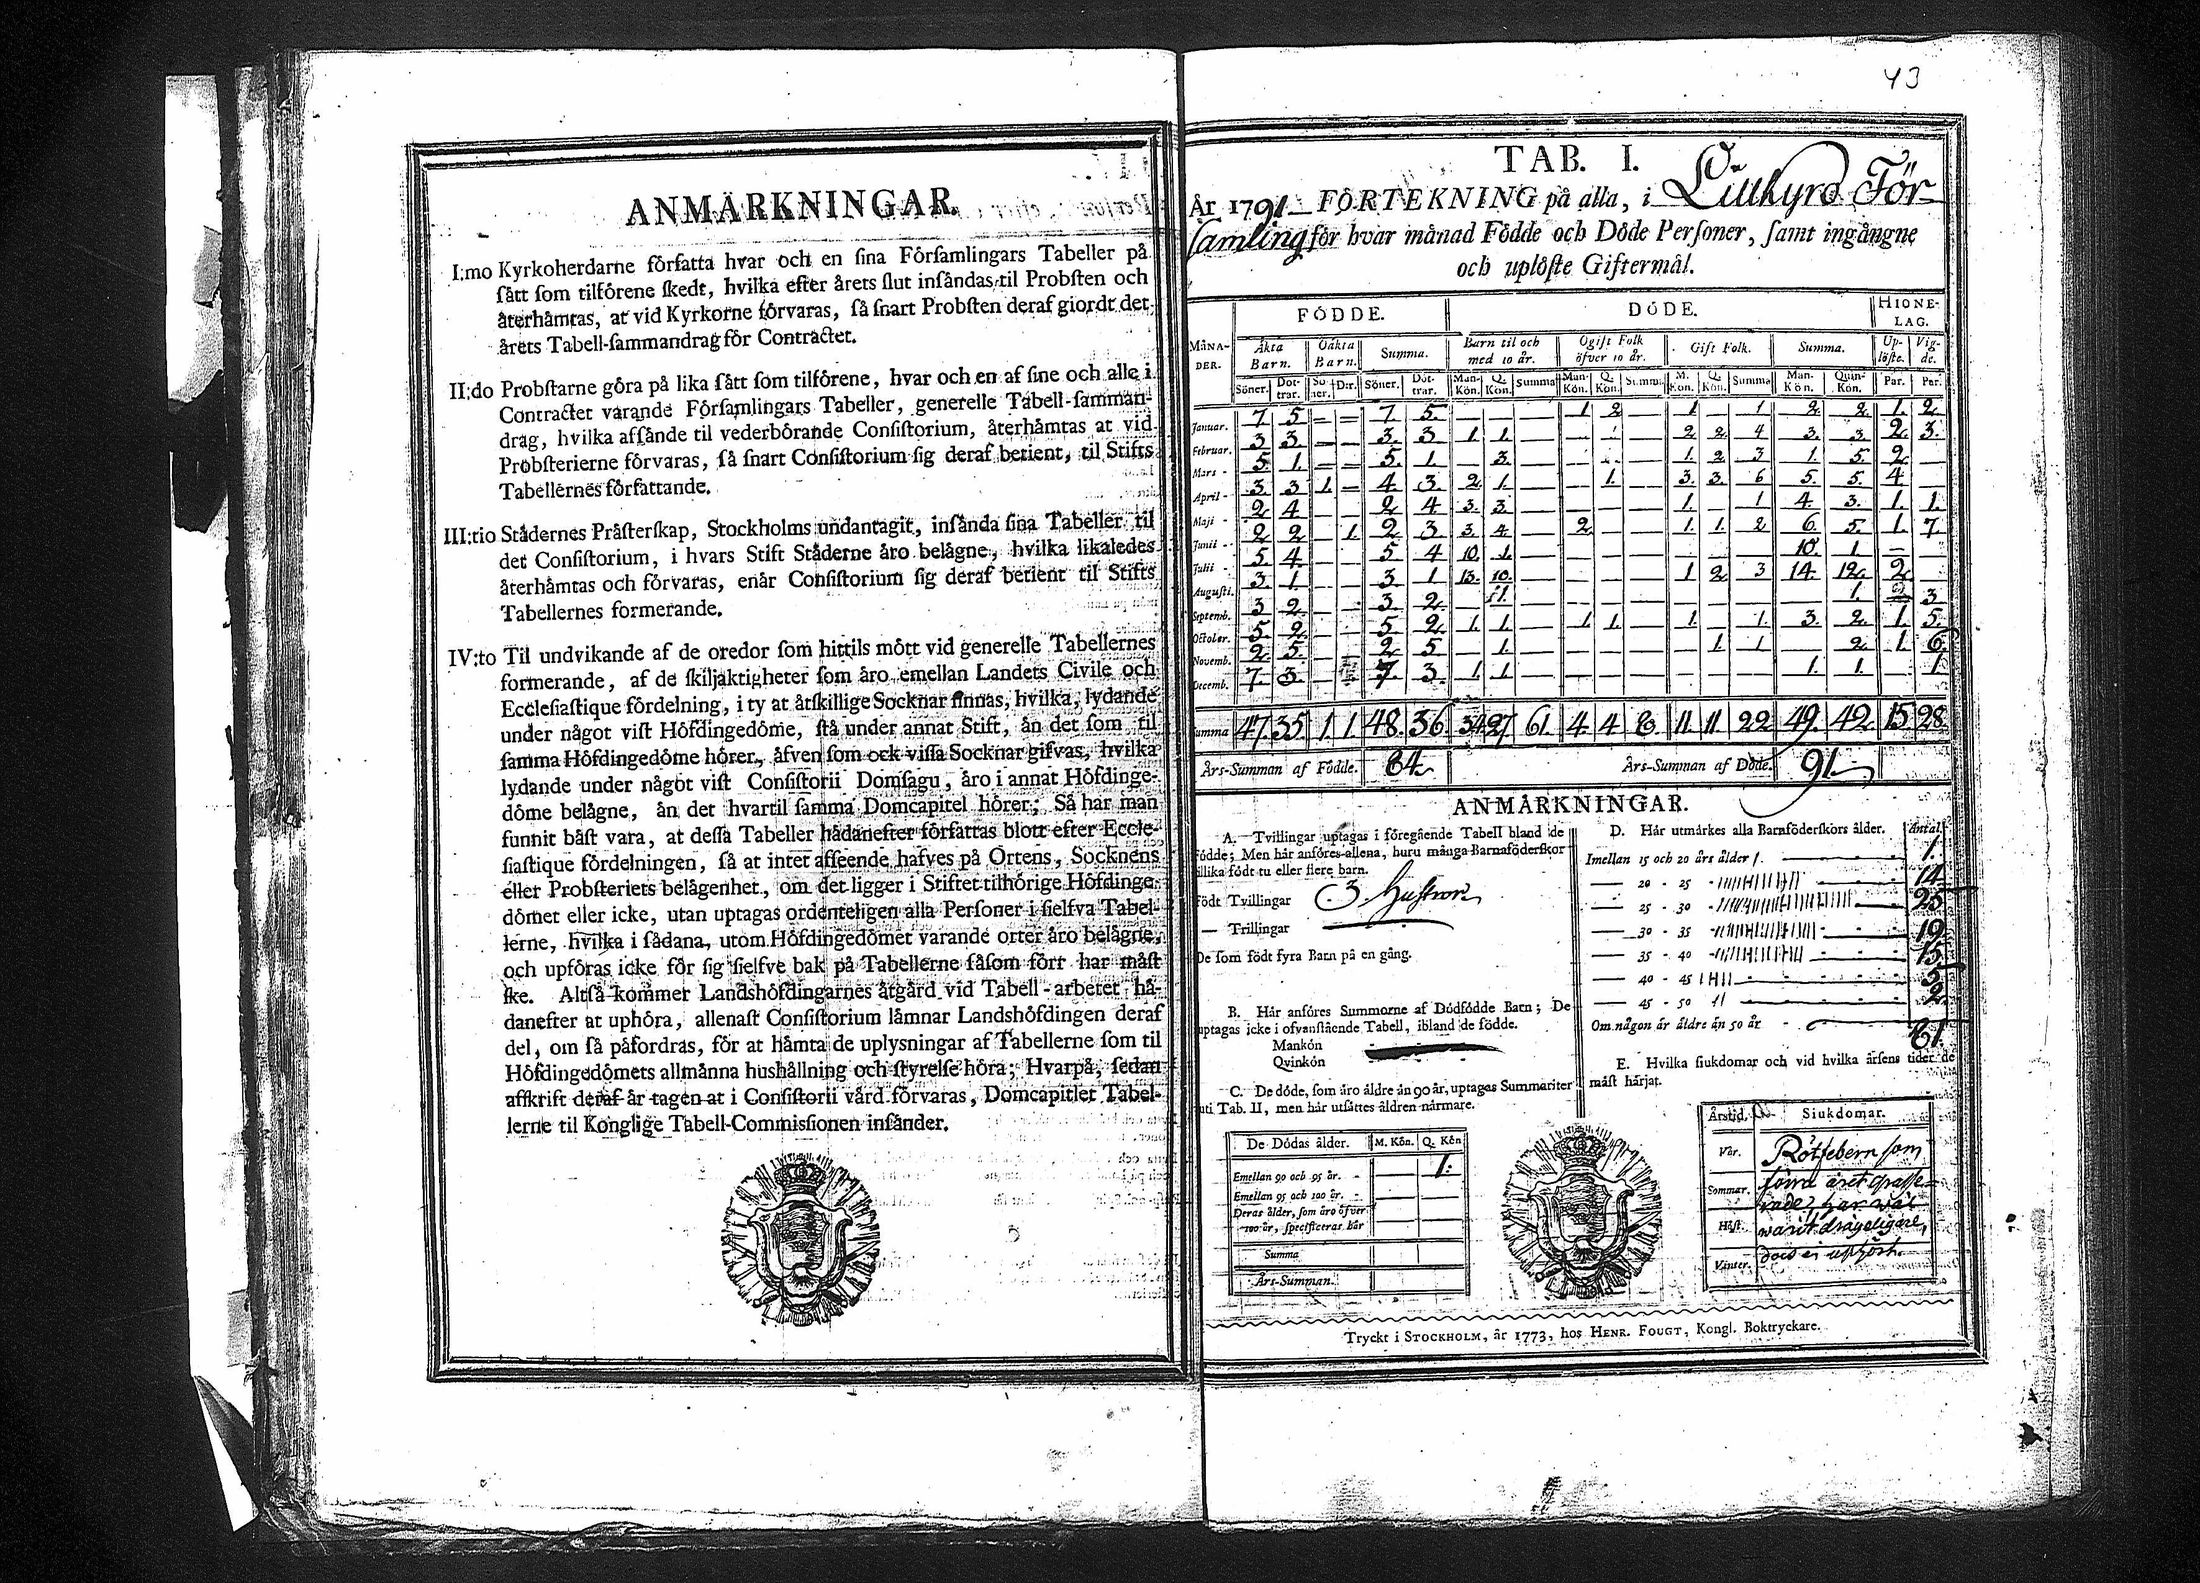 ANMÄRKNINGAR.
I:mo Kyrkoherdarne författa hvar och en sina Församlingars Tabeller på
sätt som tilförene skedt, hvilka efter årets slut insändas til Probsten och
återhämtas, at vid Kyrkorne förvaras, så snart Probsten deraf giordt det
årets Tabell-sammandrag för Contractet.
II:do Probstarne göra på lika sätt som tilförene, hvar och en af sine och alle i
Contractet varande Församlingars Tabeller, generelle Tabell-samman-
drag, hvilka afsände til vederbörande Consistorium, återhämtas at vid
Probsterierne förvaras, så snart Consistorium sig deraf betient, til Stifts
Tabellernes författande.
III:tio Städernes Prästerskap, Stockholms undantagit, insända sina Tabeller til
det Consistorium, i hvars Stift Städerne äro belägne, hvilka likaledes
återhämtas och förvaras, enär Consistorium sig deraf betient til Stifts
Tabellernes formerande.
IV:to Til undvikande af de oredor som hittils mött vid generelle Tabellernes
formerande, af de skiljaktigheter som äro emellan Landets Civile och
Ecclesiastique fördelning, i ty at åtskillige Socknar finnas, hvilka, lydande
under något vist Höfdingedöme, stå under annat Stift, än det som til
samma Höfdingedöme hörer, äfven som ock vissa Socknar gifvas, hvilka
lydande under något vist Consistorii Domsagu, äro i annat Höfdinge-
döme belägne, än det hvartil samma Domcapitel hörer; Så har man
funnit bäst vara, at dessa Tabeller hädanefter författas blott efter Eccle-
siastique fördelningen, så at intet afseende hafves på Ortens, Socknens
eller Probsteriets belägenhet, om det ligger i Stiftet tilhörige Höfdinge-
dömet eller icke, utan uptagas ordenteligen alla Personer i sielfva Tabel-
lerne, hvilka i sådana, utom Höfdingedömet varande orter äro belägne,
och upföras icke för sig sielfve bak på Tabellerne såsom förr har måst
ske. Altså kommer Landshöfdingarnes åtgärd vid Tabell-arbetet hä-
danefter at uphöra, allenast Consistorium lämnar Landshöfdingen deraf
del, om så påfordras, för at hämta de uplysningar af Tabellerne som til
Höfdingedömets allmänna hushållning och styrelse höra; Hvarpå, sedan
afskrift deraf är tagen at i Consistorii vård förvaras, Domcapitlet Tabel-
lerne til Konglige Tabell-Commissionen insänder.
43
TAB. I.
År 1791 FÖRTEKNING på alla, i Lillkyro För-
samling för hvar månad Födde och Döde Personer, samt ingångne
och uplöste Giftermål.
FÖDDE. DÖDE. HIONE-LAG.
MÅNA-DER. Äkta Barn. Oäkta Barn. Summa. Barn til och med 10 år. Ogift Folk öfver 10 år. Gift Folk. Summa. Up-löste. Vig-de.
Söner. Dot-trar. Sö-ner. D:r. Söner. Döt-trar. Man-Kön. Q. Kön. Summa Man-Kön. Q. Kön. Summa M. Kön. Q. Kön. Summa Man-Kön. Quin-Kön. Par. Par.
Januar. 7 5 — — 7 5 — — — 1 2 — 1 — 1 2 2 1 2
Februar. 3 3 — — 3 3 1 1 — — — 2 2 4 3 3 2 3
Mars 5 1 — — 5 1 — 3 — — — 1 2 3 1 5 2 —
April 3 3 1 — 4 3 2 1 — — 1 — 3 3 6 5 5 4 —
Maji 2 4 — — 2 4 3 3 — — — — 1 — 1 4 3 1 1
Junii 2 2 — 1 2 3 3 4 — 2 — — 1 1 2 6 5 1 7
Julii 5 4 — — 5 4 10 1 — — — — — — — 10 1 — —
Augusti. 3 1 — — 3 1 13 10 — — — — 1 2 3 14 12 2 —
Septemb. 3 2 — — 3 2 — 1 — — — — — — — — 1 3
October. 5 2 — — 5 2 1 1 — 1 1 — 1 — 1 3 2 1 5
Novemb. 2 5 — — 2 5 — 1 — — — — — 1 1 — 2 1 6
Decemb. 7 3 — 7 3 1 1 — — — — — — — 1 1 — 1
Summa 47 35 1 1 48 36 34 27 61 4 4 8 11 11 22 49 42 15 28
Års-Summan af Födde. 84 Års-Summan af Döde. 91
ANMÄRKNINGAR.
A. Tvillingar uptagas i föregående Tabell bland de
födde; Men här anföres allena, huru många Barnaföderskor
illika födt tu eller flere barn.
Födt Tvillingar 3 Hustror
— Trillingar
De som födt fyra Barn på en gång.
B. Här anföres Summorne af Dödfödde Barn; De
uptagas icke i ofvanstående Tabell, ibland de födde.
Mankön
Qvinkön
C. De döde, som äro äldre än 90 år, uptagas Summariter
uti Tab. II, men här utsättes åldren närmare.
De Dödas ålder. M. Kön. Q. Kön
Emellan 90 och 95 år. 1.
Emellan 95 och 100 år.
Deras ålder, som äro öfver
100 år, specificeras här
Summa
Års-Summan.
D. Här utmärkes alla Barnföderskors ålder. Antal.
Imellan 15 och 20 års ålder 1. 1.
— 20 - 25 14
— 25 - 30 25
— 30 - 35 19
— 35 - 40 15
— 40 - 45 5
— 45 - 50 2
Om någon är äldre än 50 år
81.
E. Hvilka siukdomar och vid hvilka årsens tider de
mäst härjat.
Årstid. Siukdomar.
Vår.
Sommar.
Höst.
Vinter.
Rötfebern som
förra året grasse-
rade, har väl
warit drägeligare,
dock ei uphört.
Tryckt i STOCKHOLM, år 1773, hos HENR. FOUGT, Kongl. Boktryckare.